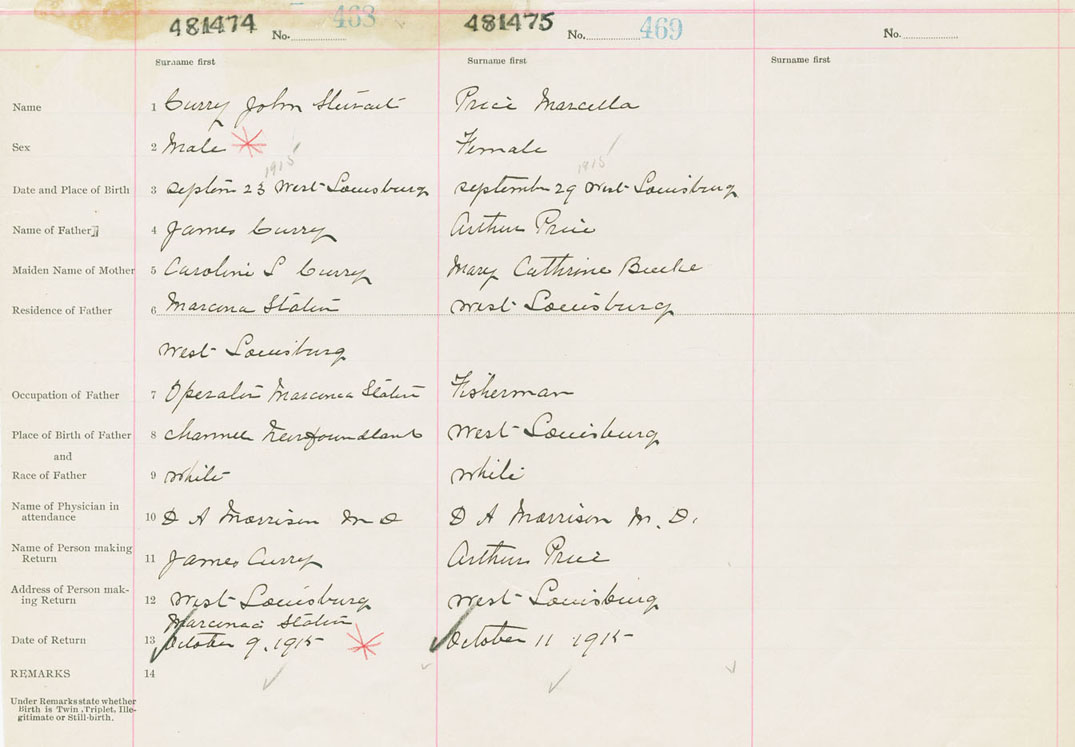 481474 No. 468 481475 No. 469 No.
Surname first Surname first Surname first
Name 1 Curry John Stewart Price Marcella
Sex 2 Male Female
1915 1915
Date and Place of Birth 3 septem 23 West Louisburg september 29 West Louisburg
Name of Father 4 James Curry Arthur Price
Maiden Name of Mother 5 Caroline S Curry Mary Cathrine Burke
Residence of Father 6 Marcona Station West Louisburg
West Louisburg
Occupation of Father 7 Operator Marconia Station Fisherman
Place of Birth of Father 8 Channel Newfoundland West Louisburg
and
Race of Father 9 White White
Name of Physician in
attendance 10 D A Morrison M D D A Morrison M. D.
Name of Person making
Return 11 James Curry Arthur Price
Address of Person mak-
ing Return 12 West Louisburg West Louisburg
Marconia Station
Date of Return 13 October 9, 1915 October 11 1915
REMARKS 14
Under Remarks state whether
Birth is Twin, Triplet, Ille-
gitimate or Still-birth.